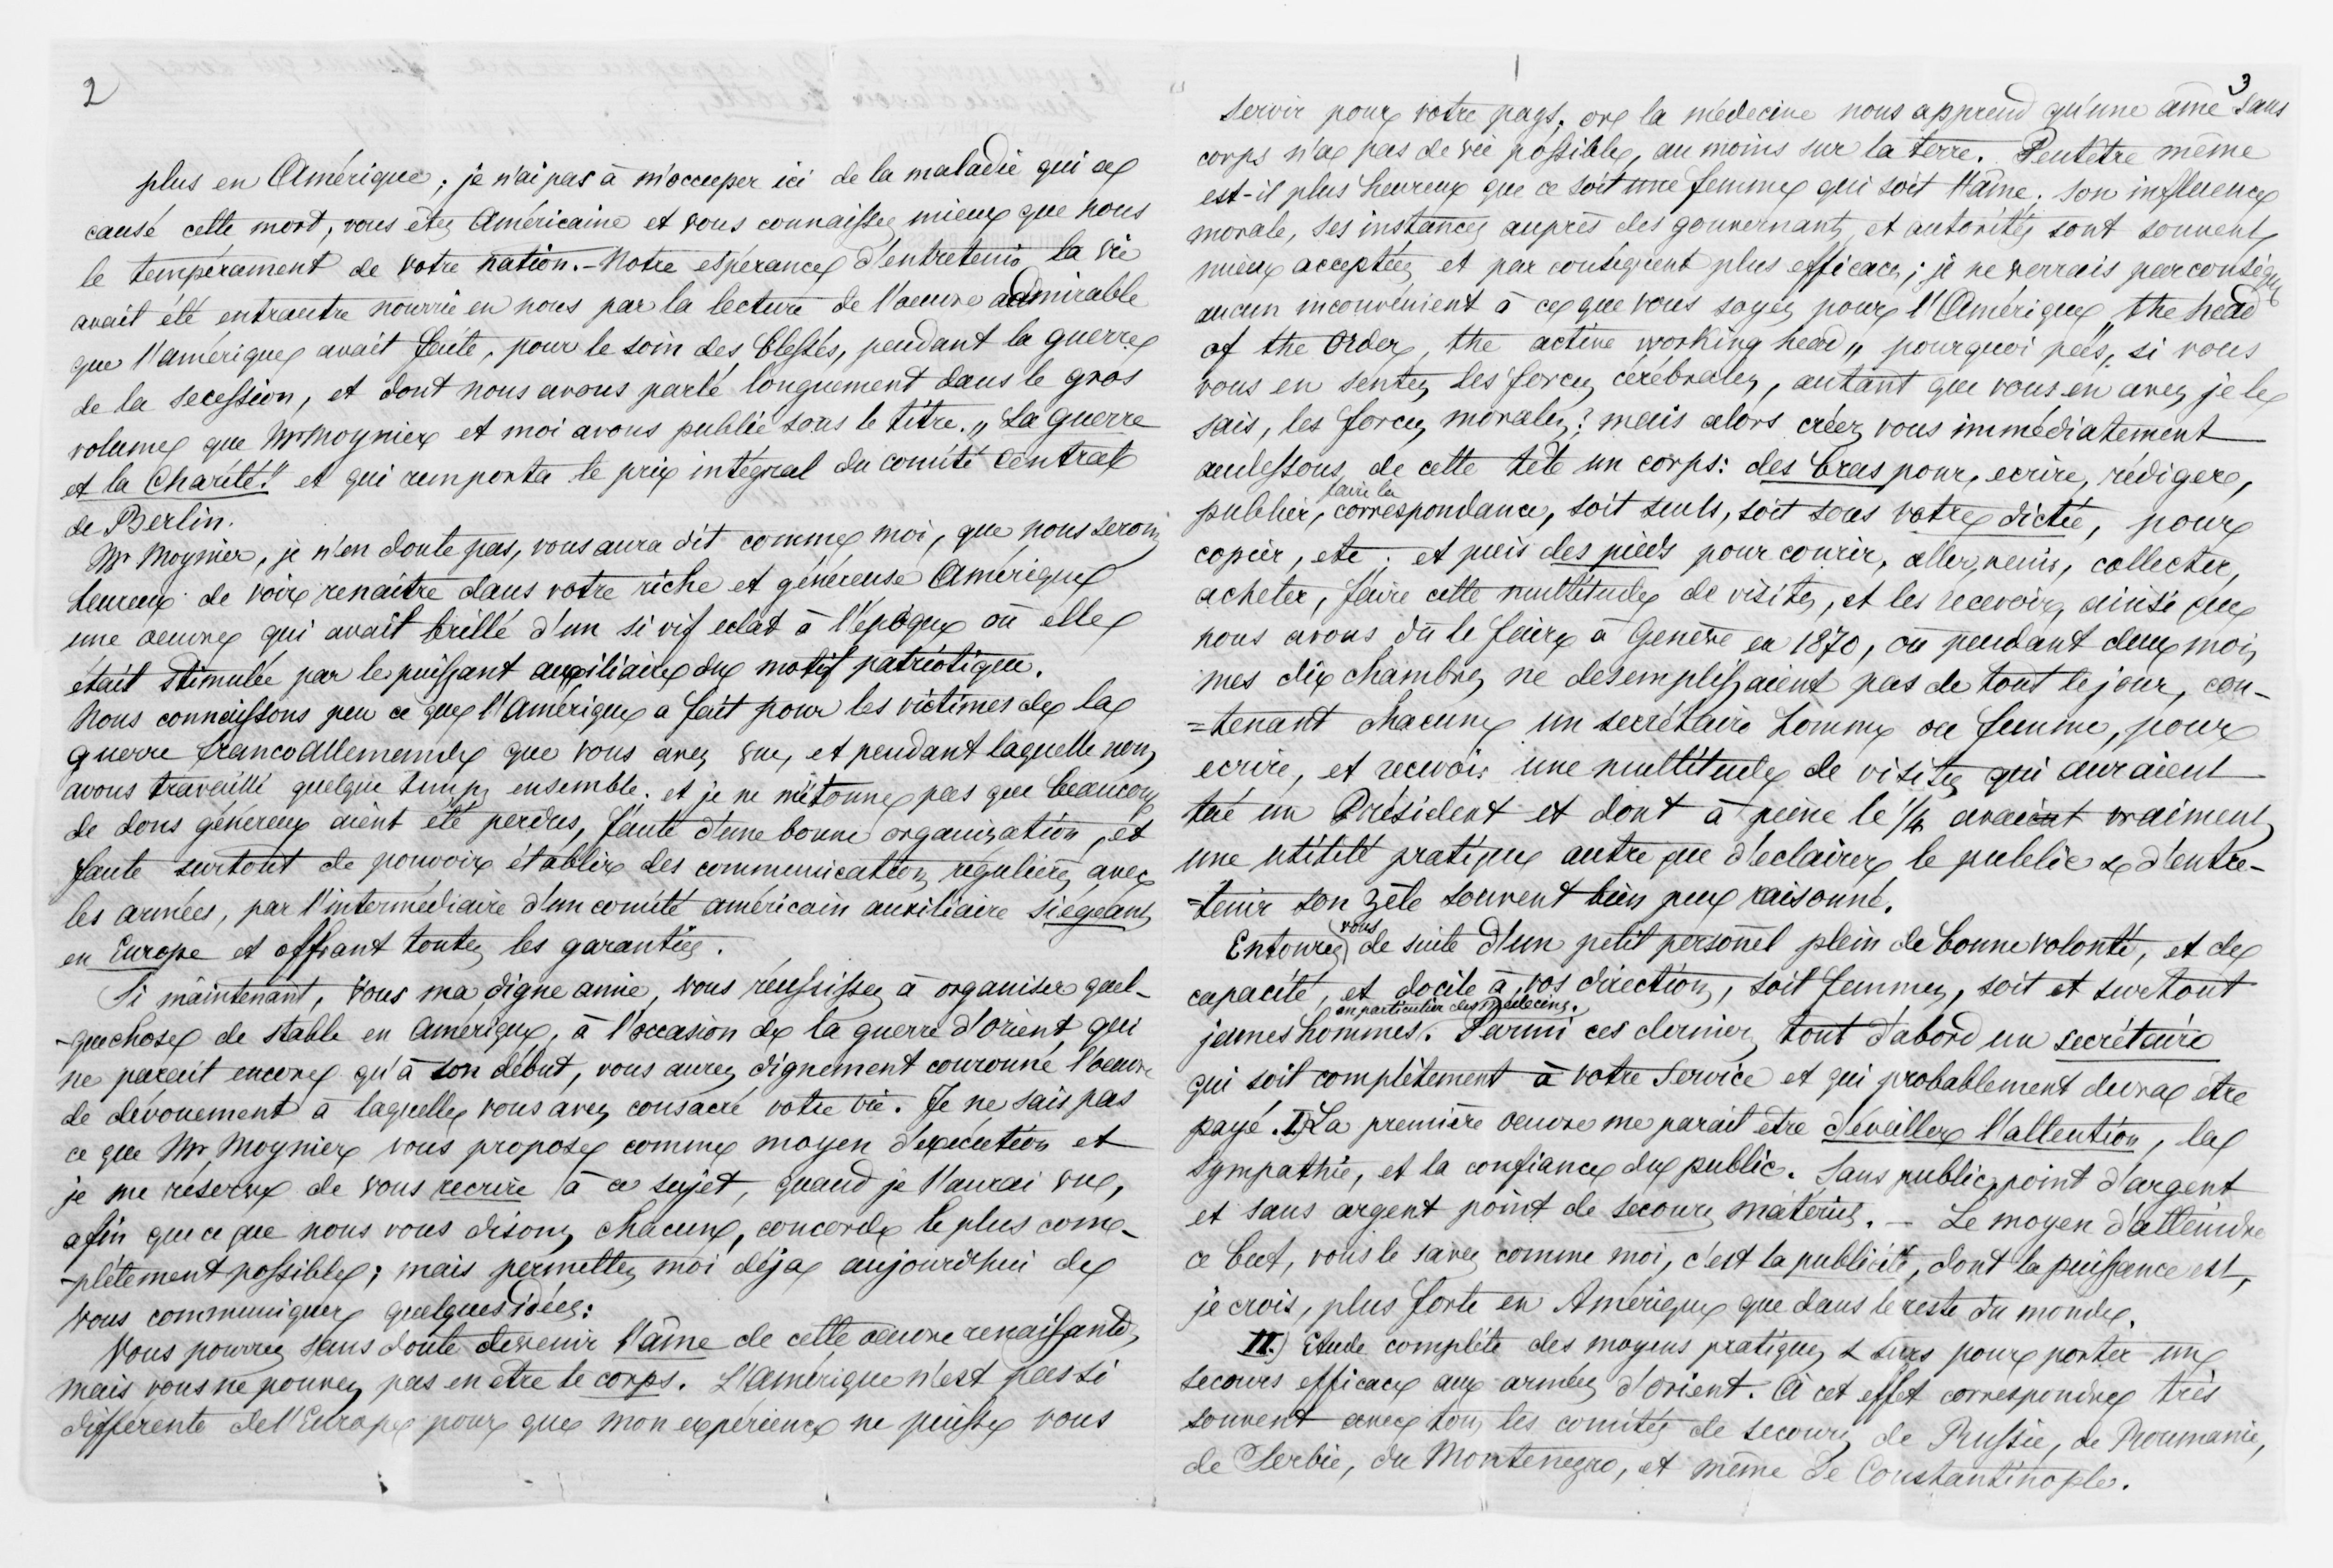 2
plus en Amérique; je n'ai pas à m'occuper ici de la maladie qui a
causé cette mort, vous êtes Américaine et vous connaissez mieux que nous
le tempérament de votre nation.- Notre espérance d'entretenir la vie
avait été entr'autre nourrie en nous par la lecture de l'oeuvre admirable
que l'amérique avait faite, pour le soin des blessés, pendant la guerre
de la secession, et dont nous avons parlé longuement dans le gros
volume que Mr Moynier et moi avons publié sous le titre „La guerre
et la Charité!" et qui remporta le prix intégral du comité Central
de Berlin.
Mr Moynier, je n'en doute pas, vous aura dit comme moi, que nous serons
heureux de voir renaitre dans votre riche et généreuse Amérique
une oeuvre qui avait brillé d'un si vif eclat à l'époque où elle
était stimulée par le puissant auxiliaire du motif patriotique.
Nous connaissons peu ce que l'Amérique a fait pour les victimes de la
guerre francoallemande que vous avez vue, et pendant laquelle nous
avons travaillé quelque temps ensemble. et je ne m'étonne pas que beaucoup
de dons généreux aient été perdus, faute d'une bonne organisation, et
faute surtout de pouvoir établir des communications régulières avec
les armées, par l'intermédiaire d'un comité américain auxiliaire siégeant
en Europe et offrant toutes les garanties.
Si maintenant, vous ma digne amie, vous réussissez à organiser quel-
-quechose de stable en Amérique, à l'occasion de la guerre d'Orient qui
ne parait encore qu'à son début, vous aurez dignement couronné l'oeuvre
de dévouement à laquelle vous avez consacré votre vie. Je ne sais pas
ce que Mr Moynier vous propose comme moyen d'exécution et
je me réserve de vous recrire à ce sujet, quand je l'aurai vu,
afin que ce que nous vous disons, chacun, concorde le plus com-
-plètement possible; mais permettez moi déja aujourd'hui de
vous communiquer quelques idées:
Vous pourrez sans doute devenir l'âme de cette oeuvre renaissante,
mais vous ne pouvez pas en être le corps. L'Amérique n'est pas si
différente de l'Europe pour que mon expérience ne puisse vous
3
servir pour votre pays. or la médecine nous apprend qu'une âme sans
corps n'a pas de vie possible, au moins sur la terre. Peutêtre même
est-il plus heureux que ce soit une femme qui soit l'âme; son influence
morale, ses instances auprès des gouvernants et autorités sont souvent
mieux acceptées et par conséquent plus efficaces; je ne verrais par conséquent
aucun inconvénient à ce que vous soyez pour l'Amérique „the head
of the Order, the active working head„ pourquoi pas, si vous
vous en sentez les forces cérébrales, autant que vous en avez, je le
sais, les forces morales? mais alors créez vous immédiatement
audessous de cette tête un corps: des bras pour, ecrire, rédiger,
publier, faire la correspondance, soit seuls, soit sous votre dictée, pour
copier, etc; et puis des pieds pour courir, aller, venir, collecter,
acheter, faire cette multitude de visites, et les recevoir, ainsi que
nous avons dû le faire à Genève en 1870, où pendant deux mois
mes dix chambres ne desemplissaient pas de tout le jour, con-
=tenant chacune un secrétaire homme ou femme, pour
ecrire, et recevoir une multitude de visites qui auraient
tué un Président et dont à peine le 1/4 avaient vraiment
une utilité pratique autre que d'eclairer le public & d'entre-
=tenir son zèle souvent bien peu raisonné.
Entourez vous de suite d'un petit personel plein de bonne volonté, et de
capacité, et docile à vos directions, soit femmes, soit et surtout
jeunes hommes. en particulier des Medecins. Parmi ces derniers tout d'abord un secrétaire
qui soit complètement à votre service et qui probablement devra être
payé. I) La première oeuvre me parait être d'éveiller l'attention, la
sympathie, et la confiance du public. Sans public, point d'argent
et sans argent point de secours matériels. - Le moyen d'atteindre
ce but, vous le savez comme moi, c'est la publicité, dont la puissance est,
je crois, plus forte en Amérique que dans le reste du monde.
II.) Etude complète des moyens pratiques & surs pour porter un
secours efficace aux armées d'Orient. A cet effet correspondre très
souvent avec tous les comités de secours de Russie, de Roumanie,
de Serbie, du Montenegro, et même de Constantinople.